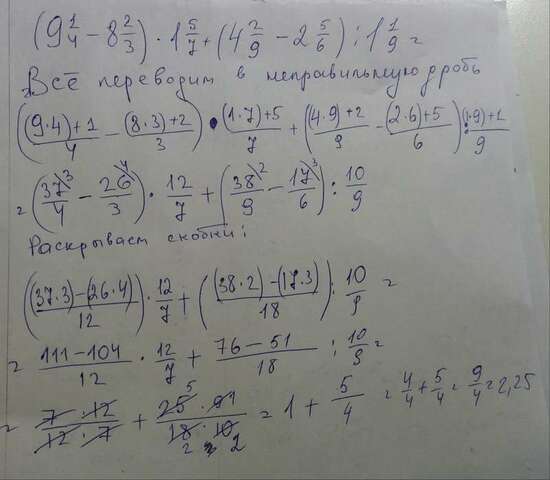 (9 1/4 − 8 2/3) · 1 5/7 + (4 2/9 − 2 5/6) : 1 1/9 =
Всё переводим в неправильную дробь
(((9·4)+1)/4 − ((8·3)+2)/3) · ((1·7)+5)/7 + (((4·9)+2)/9 − ((2·6)+5)/6) : ((1·9)+1)/9
= (37/4 ³ − 26/3 ⁴) · 12/7 + (38/9 ² − 17/6 ³) : 10/9
Раскрываем скобки:
(((37·3)−(26·4))/12) · 12/7 + (((38·2)−(17·3))/18) : 10/9 =
= (111−104)/12 · 12/7 + (76−51)/18 : 10/9 =
= (7·12)/(12·7) + (25·9)/(18·10) = 1 + 5/4 = 4/4 + 5/4 = 9/4 = 2,25